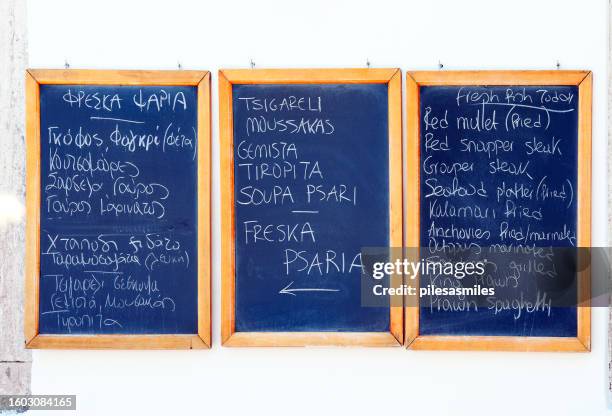 ΦΡΕΣΚΑ ΨΑΡΙΑ
φαγκρί (φέτα)
Γαύρος
Γαύρος μαρινάτος
Χταπόδι ξιδάτο
Ταραμοσαλάτα (λευκή)
Τυροπίτα
TSIGARELI
MOUSSAKAS
GEMISTA
TIROPITA
SOUPA PSARI
FRESKA
PSARIA
←
Fresh fish Today
Red mullet (fried)
Red snapper steak
Grouper steak
Seafood platter (fried)
Kalamari fried
Anchovies fried/marinated
Octopus marinated
grilled
King Prawns
Prawn Spaghetti
gettyimages
Credit: pilesasmiles
1603084165